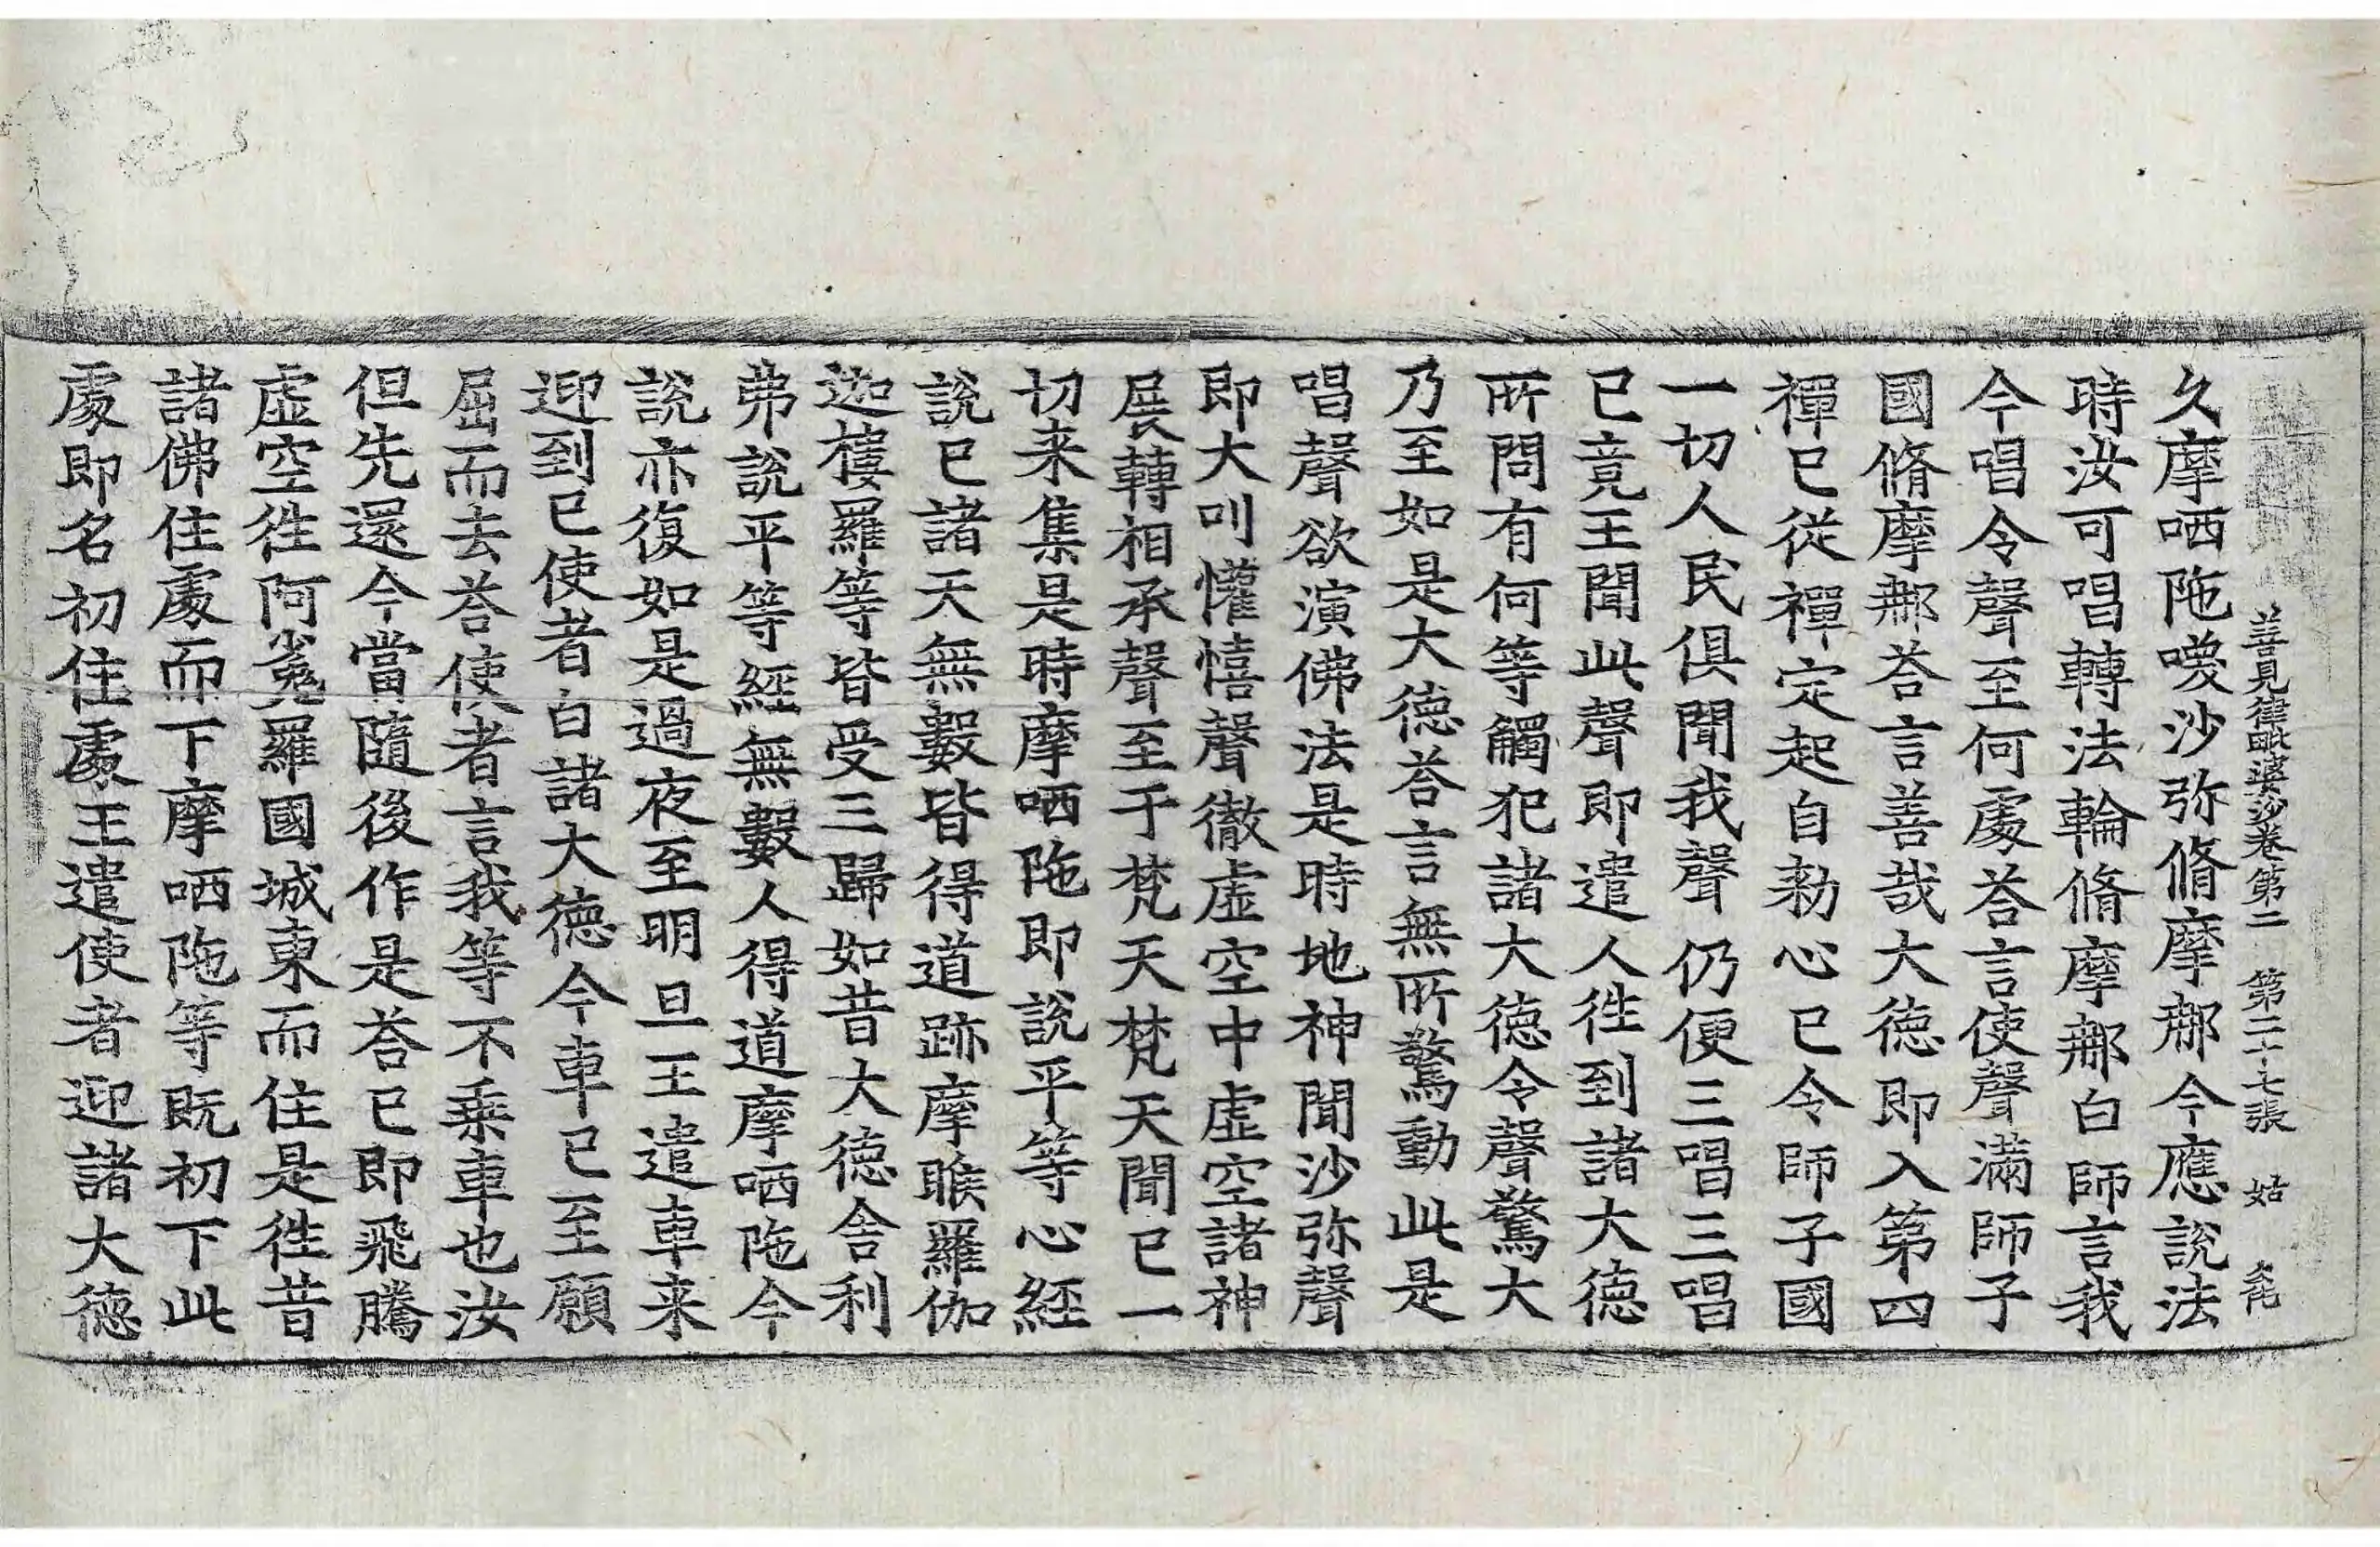 善見律毗婆沙卷第二　第二十七張　姑
久摩哂陁噯沙弥脩摩那今應說法
時汝可唱轉法輪脩摩那白師言我
今唱令聲至何處荅言使聲滿師子
國脩摩那荅言善哉大德即入第四
禪已從禪定起自勑心已令師子國
一切人民俱聞我聲仍便三唱三唱
已竟王聞此聲即遣人徃到諸大德
所問有何等觸犯諸大德令聲驚大
乃至如是大德荅言無所驚動此是
唱聲欲演佛法是時地神聞沙弥聲
即大叫懽憘聲徹虛空中虛空諸神
展轉相承聲至于梵天梵天聞已一
切来集是時摩哂陁即說平等心經
說已諸天無數皆得道跡摩睺羅伽
迦樓羅等皆受三歸如昔大德舍利
弗說平等經無數人得道摩哂陁今
說亦復如是過夜至明旦王遣車来
迎到已使者白諸大德今車已至願
屈而去荅使者言我等不乗車也汝
但先還今當隨後作是荅已即飛騰
虛空徃阿㝹羅國城東而住是徃昔
諸佛住處而下摩哂陁等既初下此
處即名初住處王遣使者迎諸大德